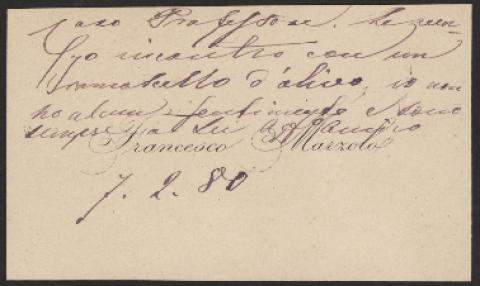 caro Professore. Le ven-
go incontro con un
ramoscello d'olivo, io non
ho alcun risentimento e sono
sempre
Francesco Marzolo
7. 2. 80